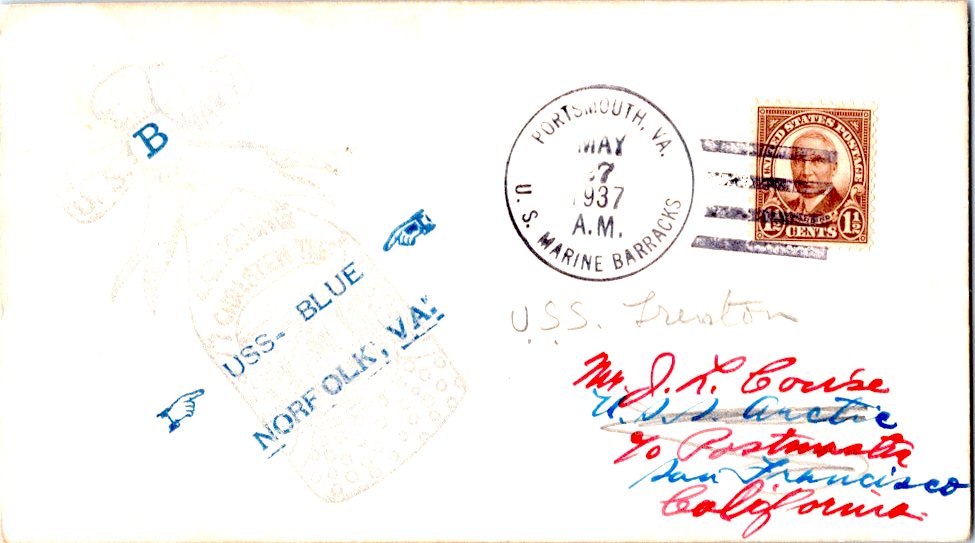 B
USS- BLUE
NORFOLK, VA.
PORTSMOUTH, VA.
MAY
7
1937
A.M.
U. S. MARINE BARRACKS
UNITED STATES POSTAGE
1½ CENTS 1½
U.S.S. Trenton
Mr. J. L. Couse
U.S.S. Arctic
c/o Postmaster
San Francisco
California.